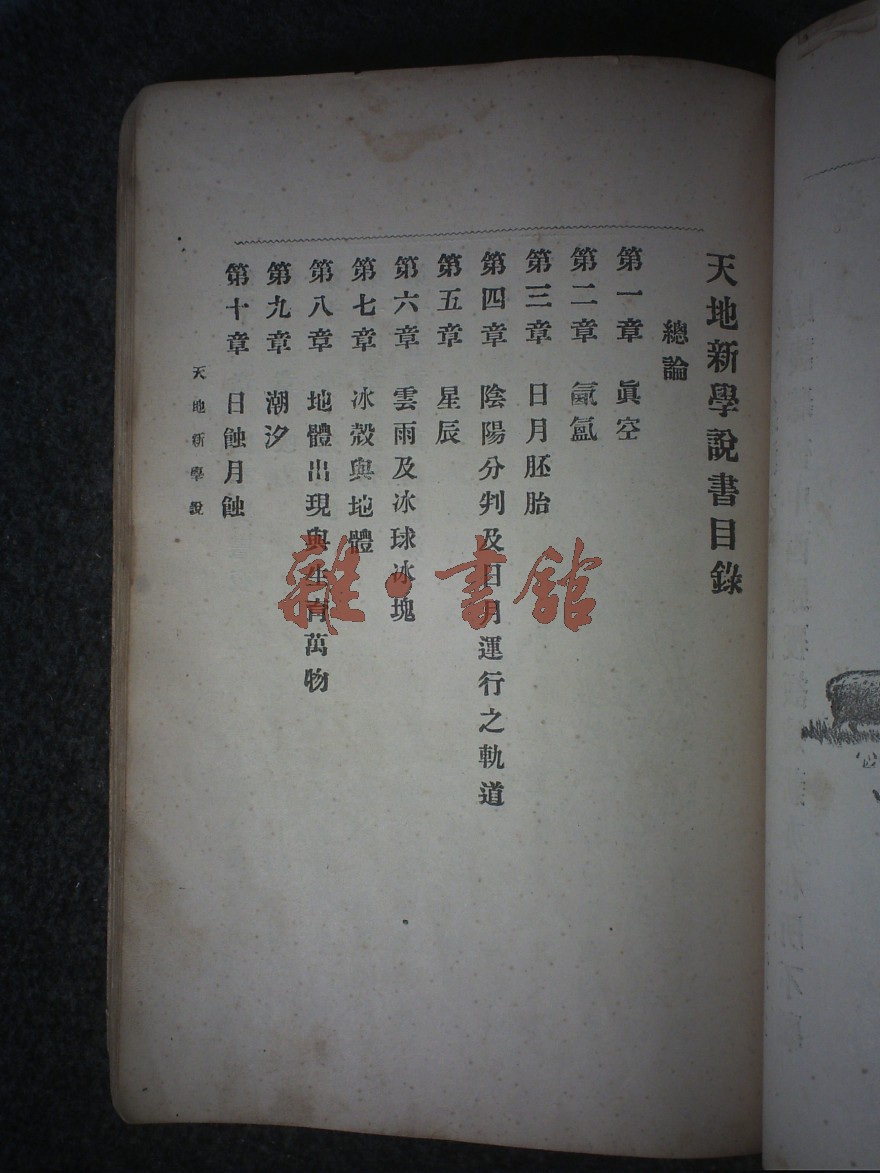 天地新學說書目錄
總論
第一章 眞空
第二章 氤氳
第三章 日月胚胎
第四章 陰陽分判及日月運行之軌道
第五章 星辰
第六章 雲雨及冰球冰塊
第七章 冰殼與地體
第八章 地體出現與生育萬物
第九章 潮汐
第十章 日蝕月蝕
天地新學說
雜·書館